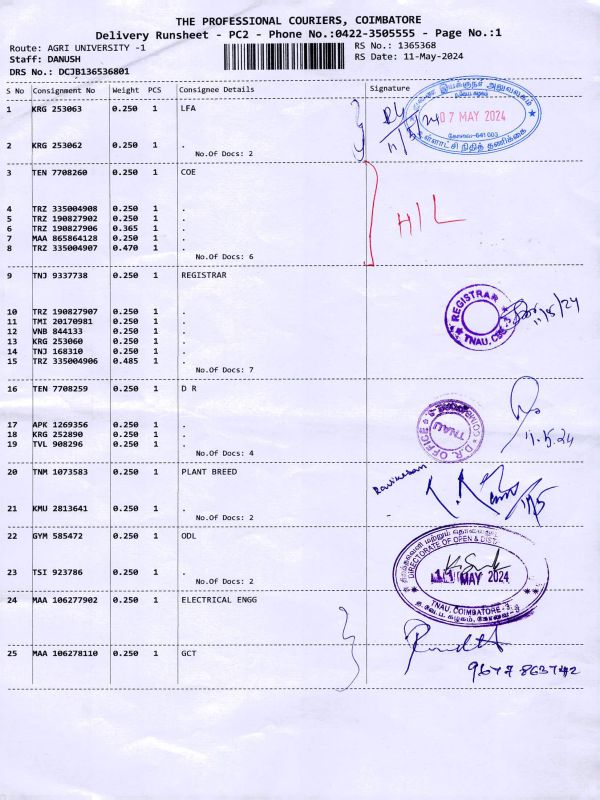 THE PROFESSIONAL COURIERS, COIMBATORE
Delivery Runsheet - PC2 - Phone No.:0422-3505555 - Page No.:1
Route: AGRI UNIVERSITY -1 RS No.: 1365368
Staff: DANUSH RS Date: 11-May-2024
DRS No.: DCJB136536801
S No Consignment No Weight PCS Consignee Details Signature
1 KRG 253063 0.250 1 LFA
11/5/24
07 MAY 2024
கோவை-641 003
2 KRG 253062 0.250 1 .
No.Of Docs: 2
3 TEN 7708260 0.250 1 COE
H/L
4 TRZ 335004908 0.250 1 .
5 TRZ 190827902 0.250 1 .
6 TRZ 190827906 0.365 1 .
7 MAA 865864128 0.250 1 .
8 TRZ 335004907 0.470 1 .
No.Of Docs: 6
9 TNJ 9337738 0.250 1 REGISTRAR
REGISTRAR
TNAU, CBE-3
11/5/24
10 TRZ 190827907 0.250 1 .
11 TMI 20170981 0.250 1 .
12 VNB 844133 0.250 1 .
13 KRG 253060 0.250 1 .
14 TNJ 168310 0.250 1 .
15 TRZ 335004906 0.485 1 .
No.Of Docs: 7
16 TEN 7708259 0.250 1 D R
D.R. OFFICE
TNAU
11.5.24
17 APK 1269356 0.250 1 .
18 KRG 252890 0.250 1 .
19 TVL 908296 0.250 1 .
No.Of Docs: 4
20 TNM 1073583 0.250 1 PLANT BREED
11/5
21 KMU 2813641 0.250 1 .
No.Of Docs: 2
22 GYM 585472 0.250 1 ODL
DIRECTORATE OF OPEN & DIST
11 MAY 2024
TNAU, COIMBATORE - 3.
23 TSI 923786 0.250 1 .
No.Of Docs: 2
24 MAA 106277902 0.250 1 ELECTRICAL ENGG
25 MAA 106278110 0.250 1 GCT